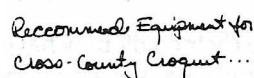 Reccommend Equipment for
Cross-County Croquet...